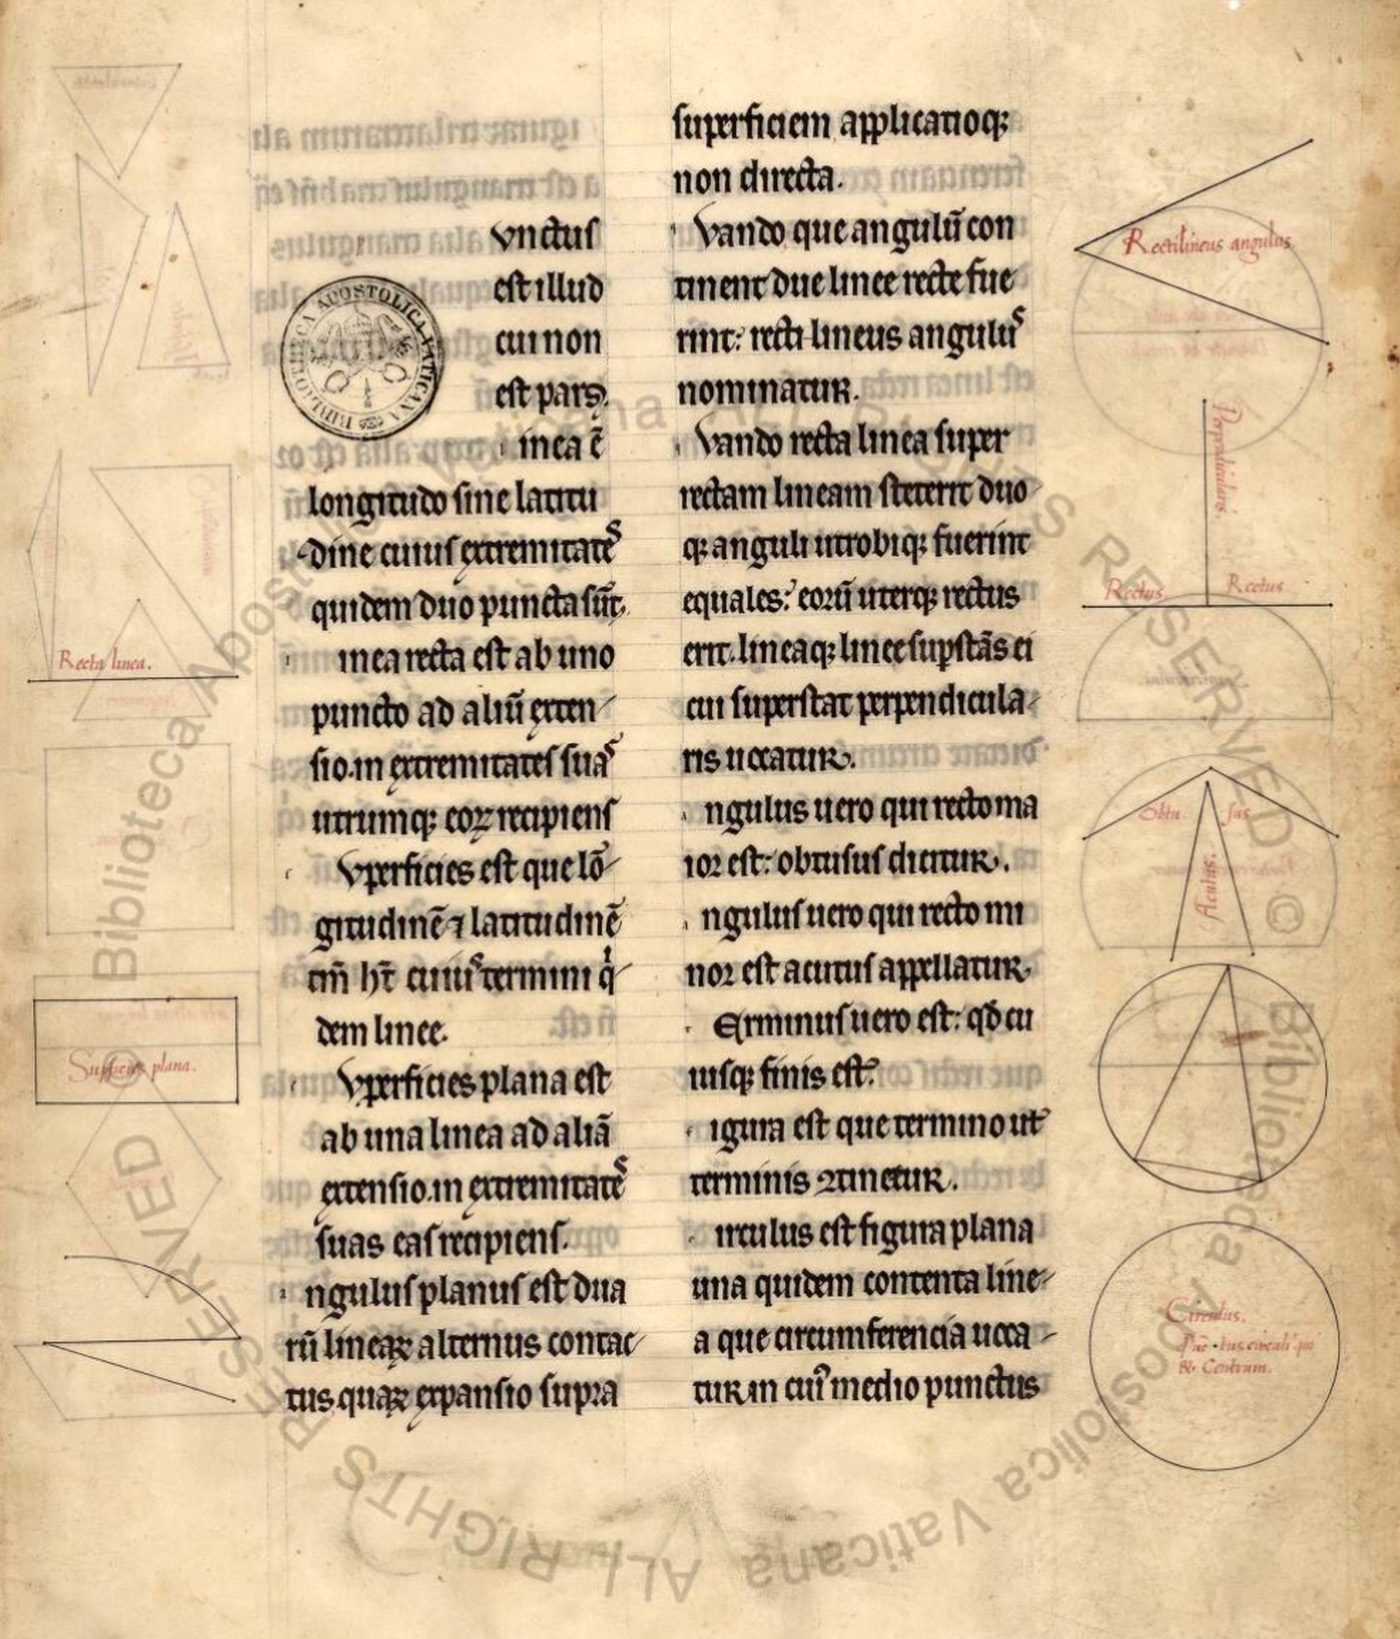 vnctus
est illud
cui non
est pars.
inea ē
longitudo sine latitu
dine cuius extremitates
quidem duo puncta sūt.
inea recta est ab uno
puncto ad aliū exten
sio.in extremitates suas
utrumq; eoꝝ recipiens
vperficies est que lō
gitudinē ⁊ latitudinē
tm̄ ht̄ cuius termini q̇
dem linee.
vperficies plana est
ab una linea ad aliā
extensio.in extremitates
suas eas recipiens.
ngulus planus est dua
rū lineaꝝ alternus contac
tus quaꝝ expansio supra
superficiem applicatioq;
non directa.
vando que angulū con
tinent due linee recte fue
rint: recti lineus angulus
nominatur.
vando recta linea super
rectam lineam steterit duo
q; anguli utrobiq; fuerint
equales: eorū uterq; rectus
erit.lineaq; linee sup̲stās ei
cui superstat perpendicula
ris uocatur.
ngulus uero qui recto ma
ior est: obtusus dicitur.
ngulus uero qui recto mi
nor est acutus appellatur.
erminus uero est: qd̄ cu
iusq; finis est.
igura est que termino ut̄
terminis ꝯtinetur.
irculus est figura plana
una quidem contenta line
a que circumferencia uoca
tur in cuiꝰ medio punctus
Recta linea.
Supficies plana.
Rectilineus angulus
Perpendicularis.
Rectus Rectus
Obtu sus
Acutus.
Circulus.
Centrum.
BIBLIOTECA APOSTOLICA VATICANA
Biblioteca Apostolica Vaticana
ALL RIGHTS RESERVED ©